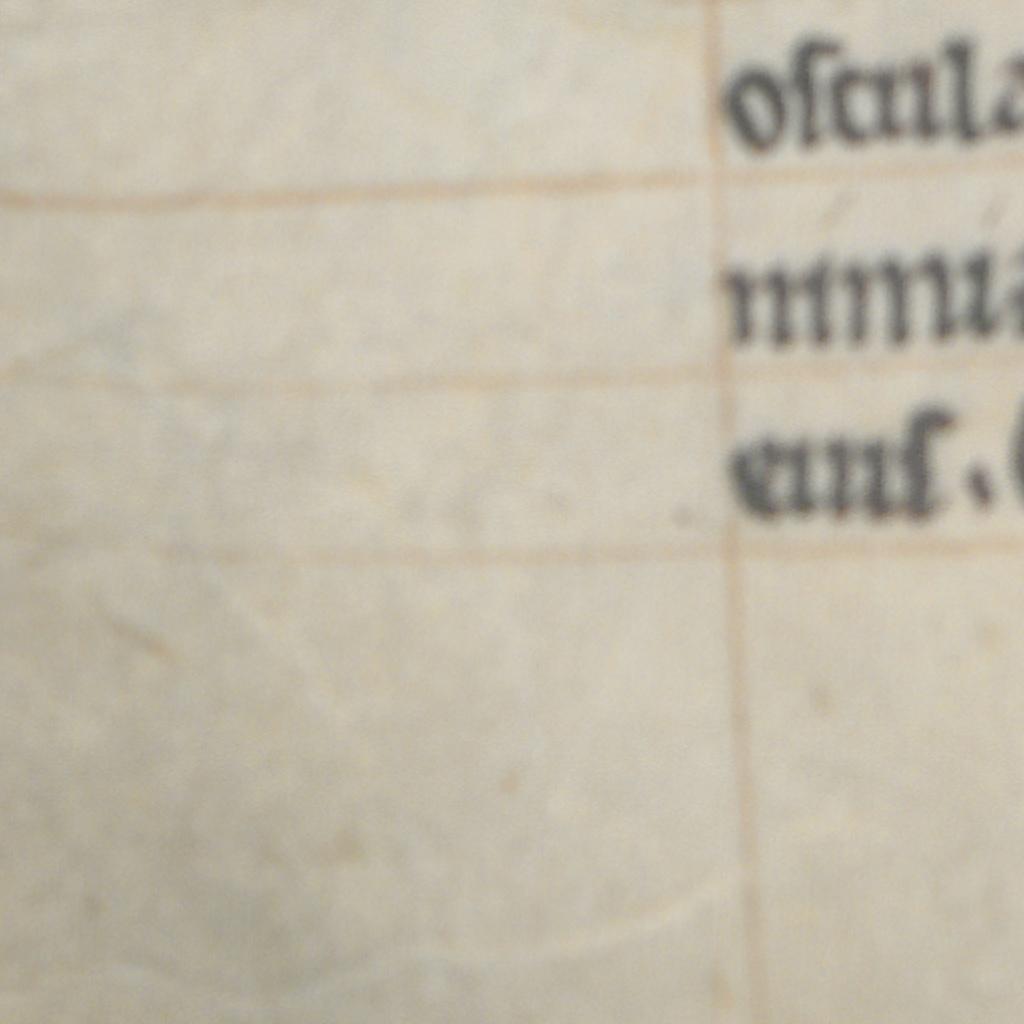 oſcula
nimia
eiuſ.